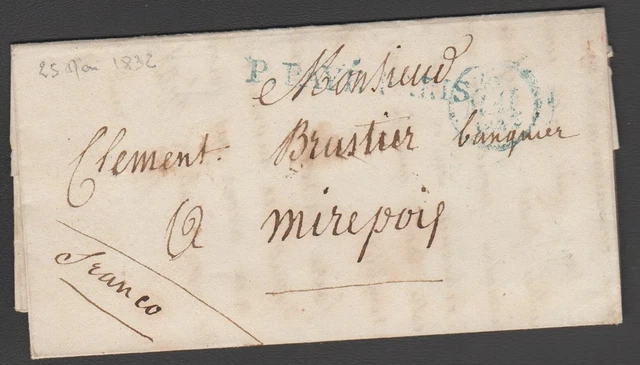 25 Mai 1832
Monsieur
Clement. Brustier banquier
a mirepoix
franco